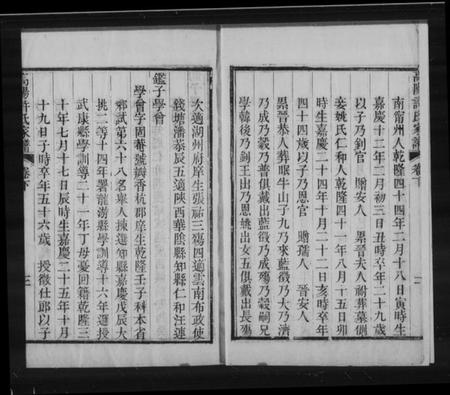 高陽許氏家譜 卷下
南甯州人乾隆四十四年二月十八日寅時生
嘉慶十二年二月初三日丑時卒年二十九歲
以子乃釗官 贈安人 累晉夫人祔葬墓側
妾姚氏仁和人乾隆四十一年八月十五日卯
時生嘉慶二十四年十月二十二日亥時卒年
四十四歲以子乃恩官 贈孺人 晉安人
累晉恭人葬眠牛山子九乃來藍徵乃大乃濟
乃成乃穀乃普俱戴出藍徵乃成殤乃穀嗣兄
學韓後乃釗王出乃恩姚出女五俱戴出長殤
二
次適湖州府庠生張 三殤四適雲南布政使
錢塘潘恭辰五適陝西華陰縣知縣仁和汪連
鑑子學曾
學曾字固菴號瓣香杭郡庠生乾隆壬子科本省
鄉試第六十八名舉人揀選知縣嘉慶戊辰大
挑二等十四年署龍游縣學訓導十六年選授
武康縣學訓導二十一年丁母憂回籍乾隆三
十年七月十七日辰時生嘉慶二十五年十月
十九日子時卒年五十六歲 授徵仕郎以子
高陽許氏家譜 卷下
三